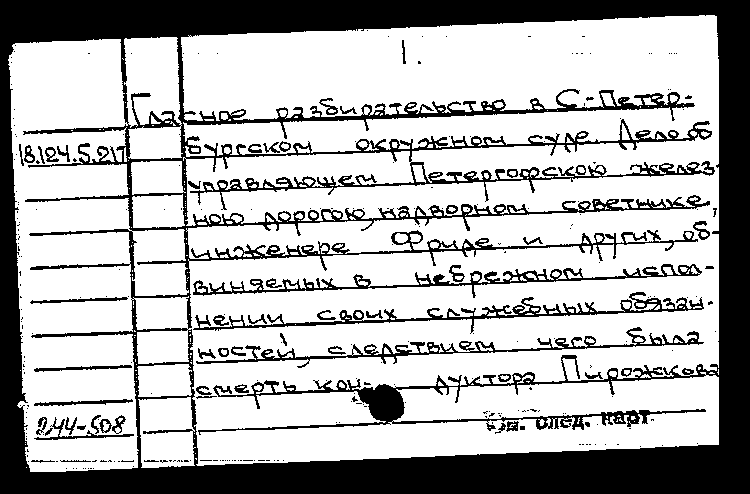 1.
Гласное разбирательство в С.-Петер-
18.124.5.217 бургском окружном суде. Дело об
управляющем Петергофскою желез-
ною дорогою, надворном советнике,
инженере Фриде и других, об-
виняемых в небрежном испол-
нении своих служебных обязан-
ностей, следствием чего была
смерть кон- дуктора Пирожкова
244-508 См. след. карт.